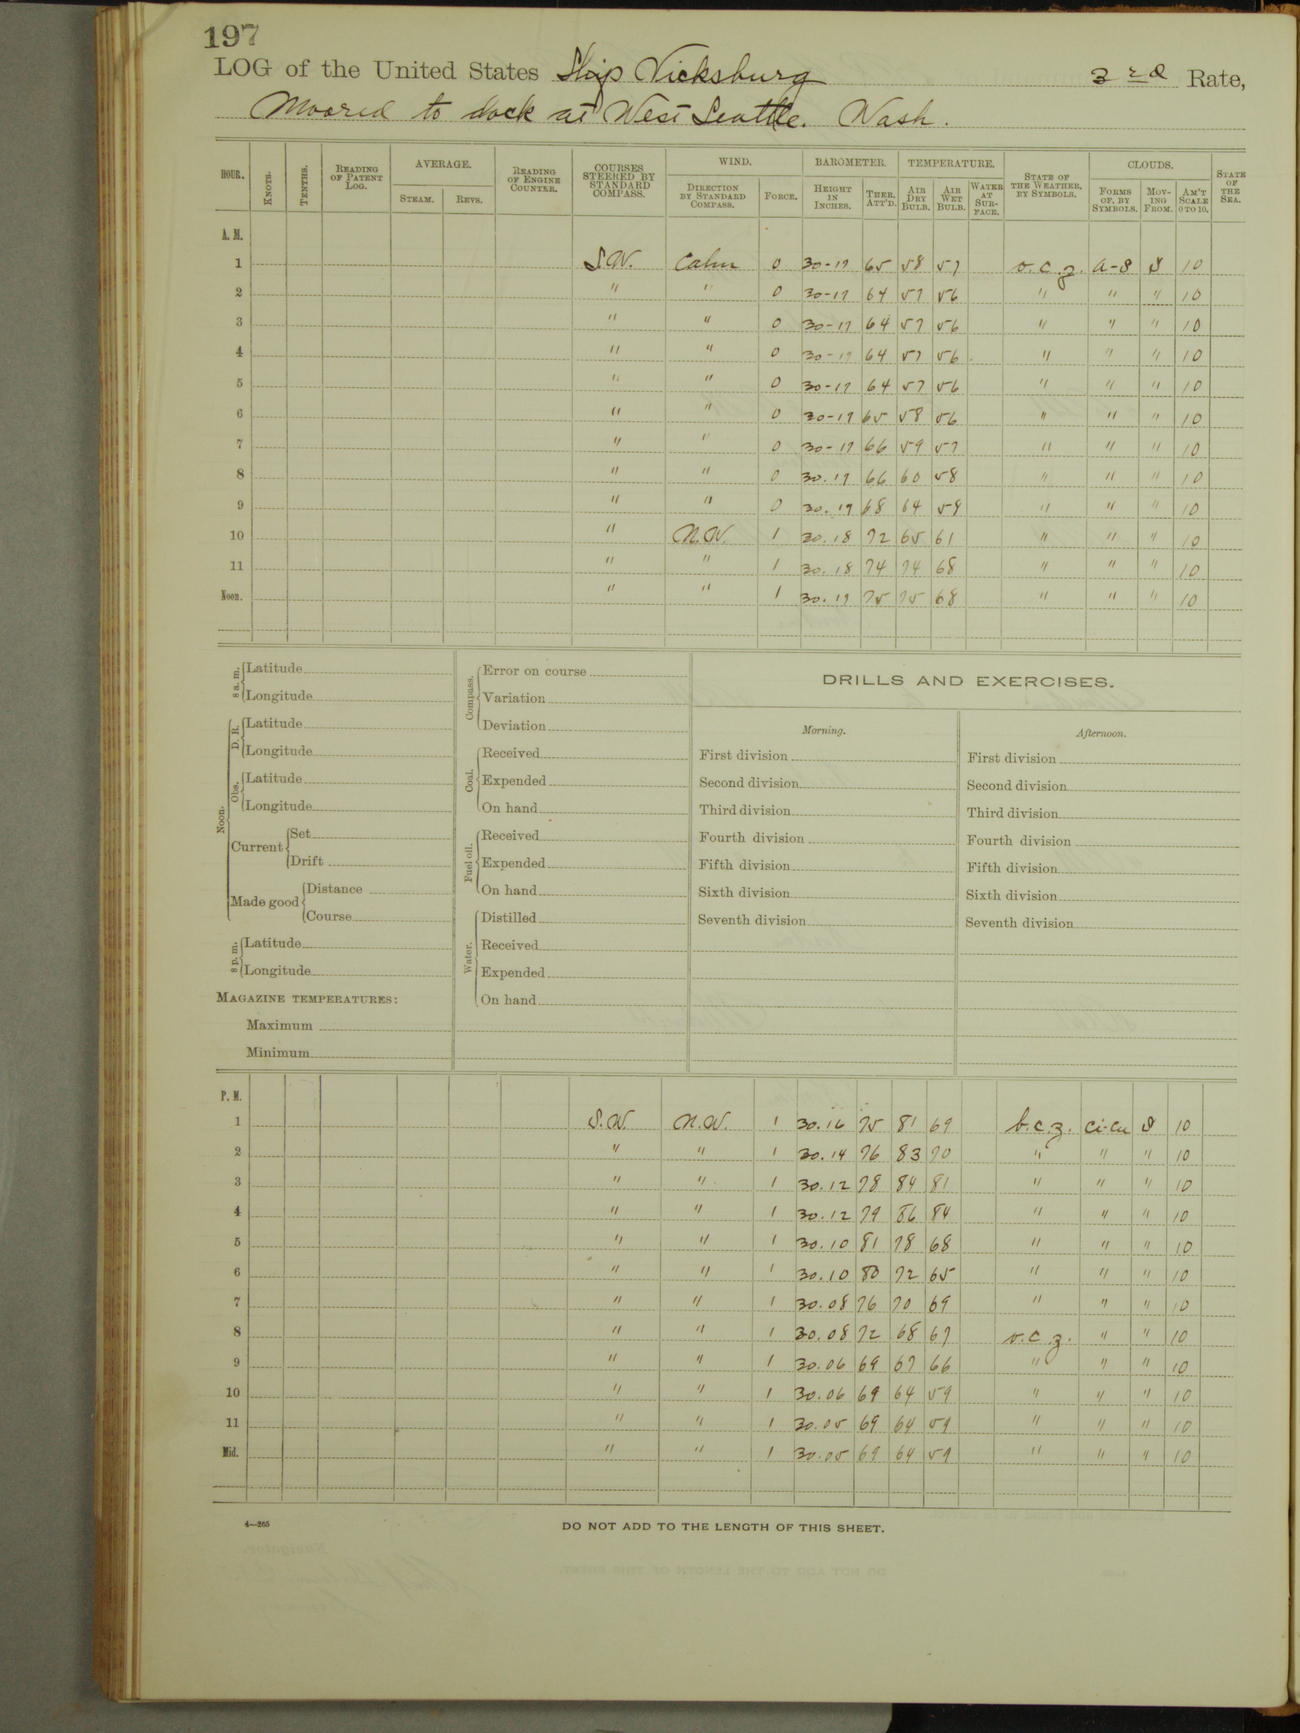 197
LOG of the United States Ship Vicksburg 3rd Rate,
Moored to dock at West Seattle. Wash.
HOUR. KNOTS. TENTHS. READING OF PATENT LOG. AVERAGE. STEAM. REVS. READING OF ENGINE COUNTER. COURSES STEERED BY STANDARD COMPASS. WIND. DIRECTION BY STANDARD COMPASS. FORCE. BAROMETER. HEIGHT IN INCHES. THER. ATT'D. TEMPERATURE. AIR DRY BULB. AIR WET BULB. WATER AT SURFACE. STATE OF THE WEATHER, BY SYMBOLS. CLOUDS. FORMS OF, BY SYMBOLS. MOVING FROM. AM'T SCALE 0 TO 10. STATE OF THE SEA.
A. M.
1 S.W. Calm 0 30-17 65 58 57 o.c.z. a-s S 10
2 " " 0 30-17 64 57 56 " " " 10
3 " " 0 30-17 64 57 56 " " " 10
4 " " 0 30-17 64 57 56 " " " 10
5 " " 0 30-17 64 57 56 " " " 10
6 " " 0 30-17 65 58 56 " " " 10
7 " " 0 30-17 66 59 57 " " " 10
8 " " 0 30.17 66 60 58 " " " 10
9 " " 0 30.19 68 64 59 " " " 10
10 " N.W. 1 30.18 72 65 61 " " " 10
11 " " 1 30.18 74 74 68 " " " 10
Noon. " " 1 30.17 75 75 68 " " " 10
8 a. m. Latitude
Longitude
Noon. D. R. Latitude
Longitude
Obs. Latitude
Longitude
Current Set
Drift
Made good Distance
Course
8 p. m. Latitude
Longitude
MAGAZINE TEMPERATURES:
Maximum
Minimum
Compass. Error on course
Variation
Deviation
Coal. Received
Expended
On hand
Fuel oil. Received
Expended
On hand
Water. Distilled
Received
Expended
On hand
DRILLS AND EXERCISES.
Morning.
First division
Second division
Third division
Fourth division
Fifth division
Sixth division
Seventh division
Afternoon.
First division
Second division
Third division
Fourth division
Fifth division
Sixth division
Seventh division
P. M.
1 S.W. N.W. 1 30.16 75 81 69 b.c.z. Ci-Cu S 10
2 " " 1 30.14 76 83 70 " " " 10
3 " " 1 30.12 78 84 81 " " " 10
4 " " 1 30.12 79 86 84 " " " 10
5 " " 1 30.10 81 78 68 " " " 10
6 " " 1 30.10 80 72 65 " " " 10
7 " " 1 30.08 76 70 69 " " " 10
8 " " 1 30.08 72 68 67 o.c.z. " " 10
9 " " 1 30.06 69 67 66 " " " 10
10 " " 1 30.06 69 64 59 " " " 10
11 " " 1 30.05 69 64 59 " " " 10
Mid. " " 1 30.05 69 64 59 " " " 10
4—265
DO NOT ADD TO THE LENGTH OF THIS SHEET.